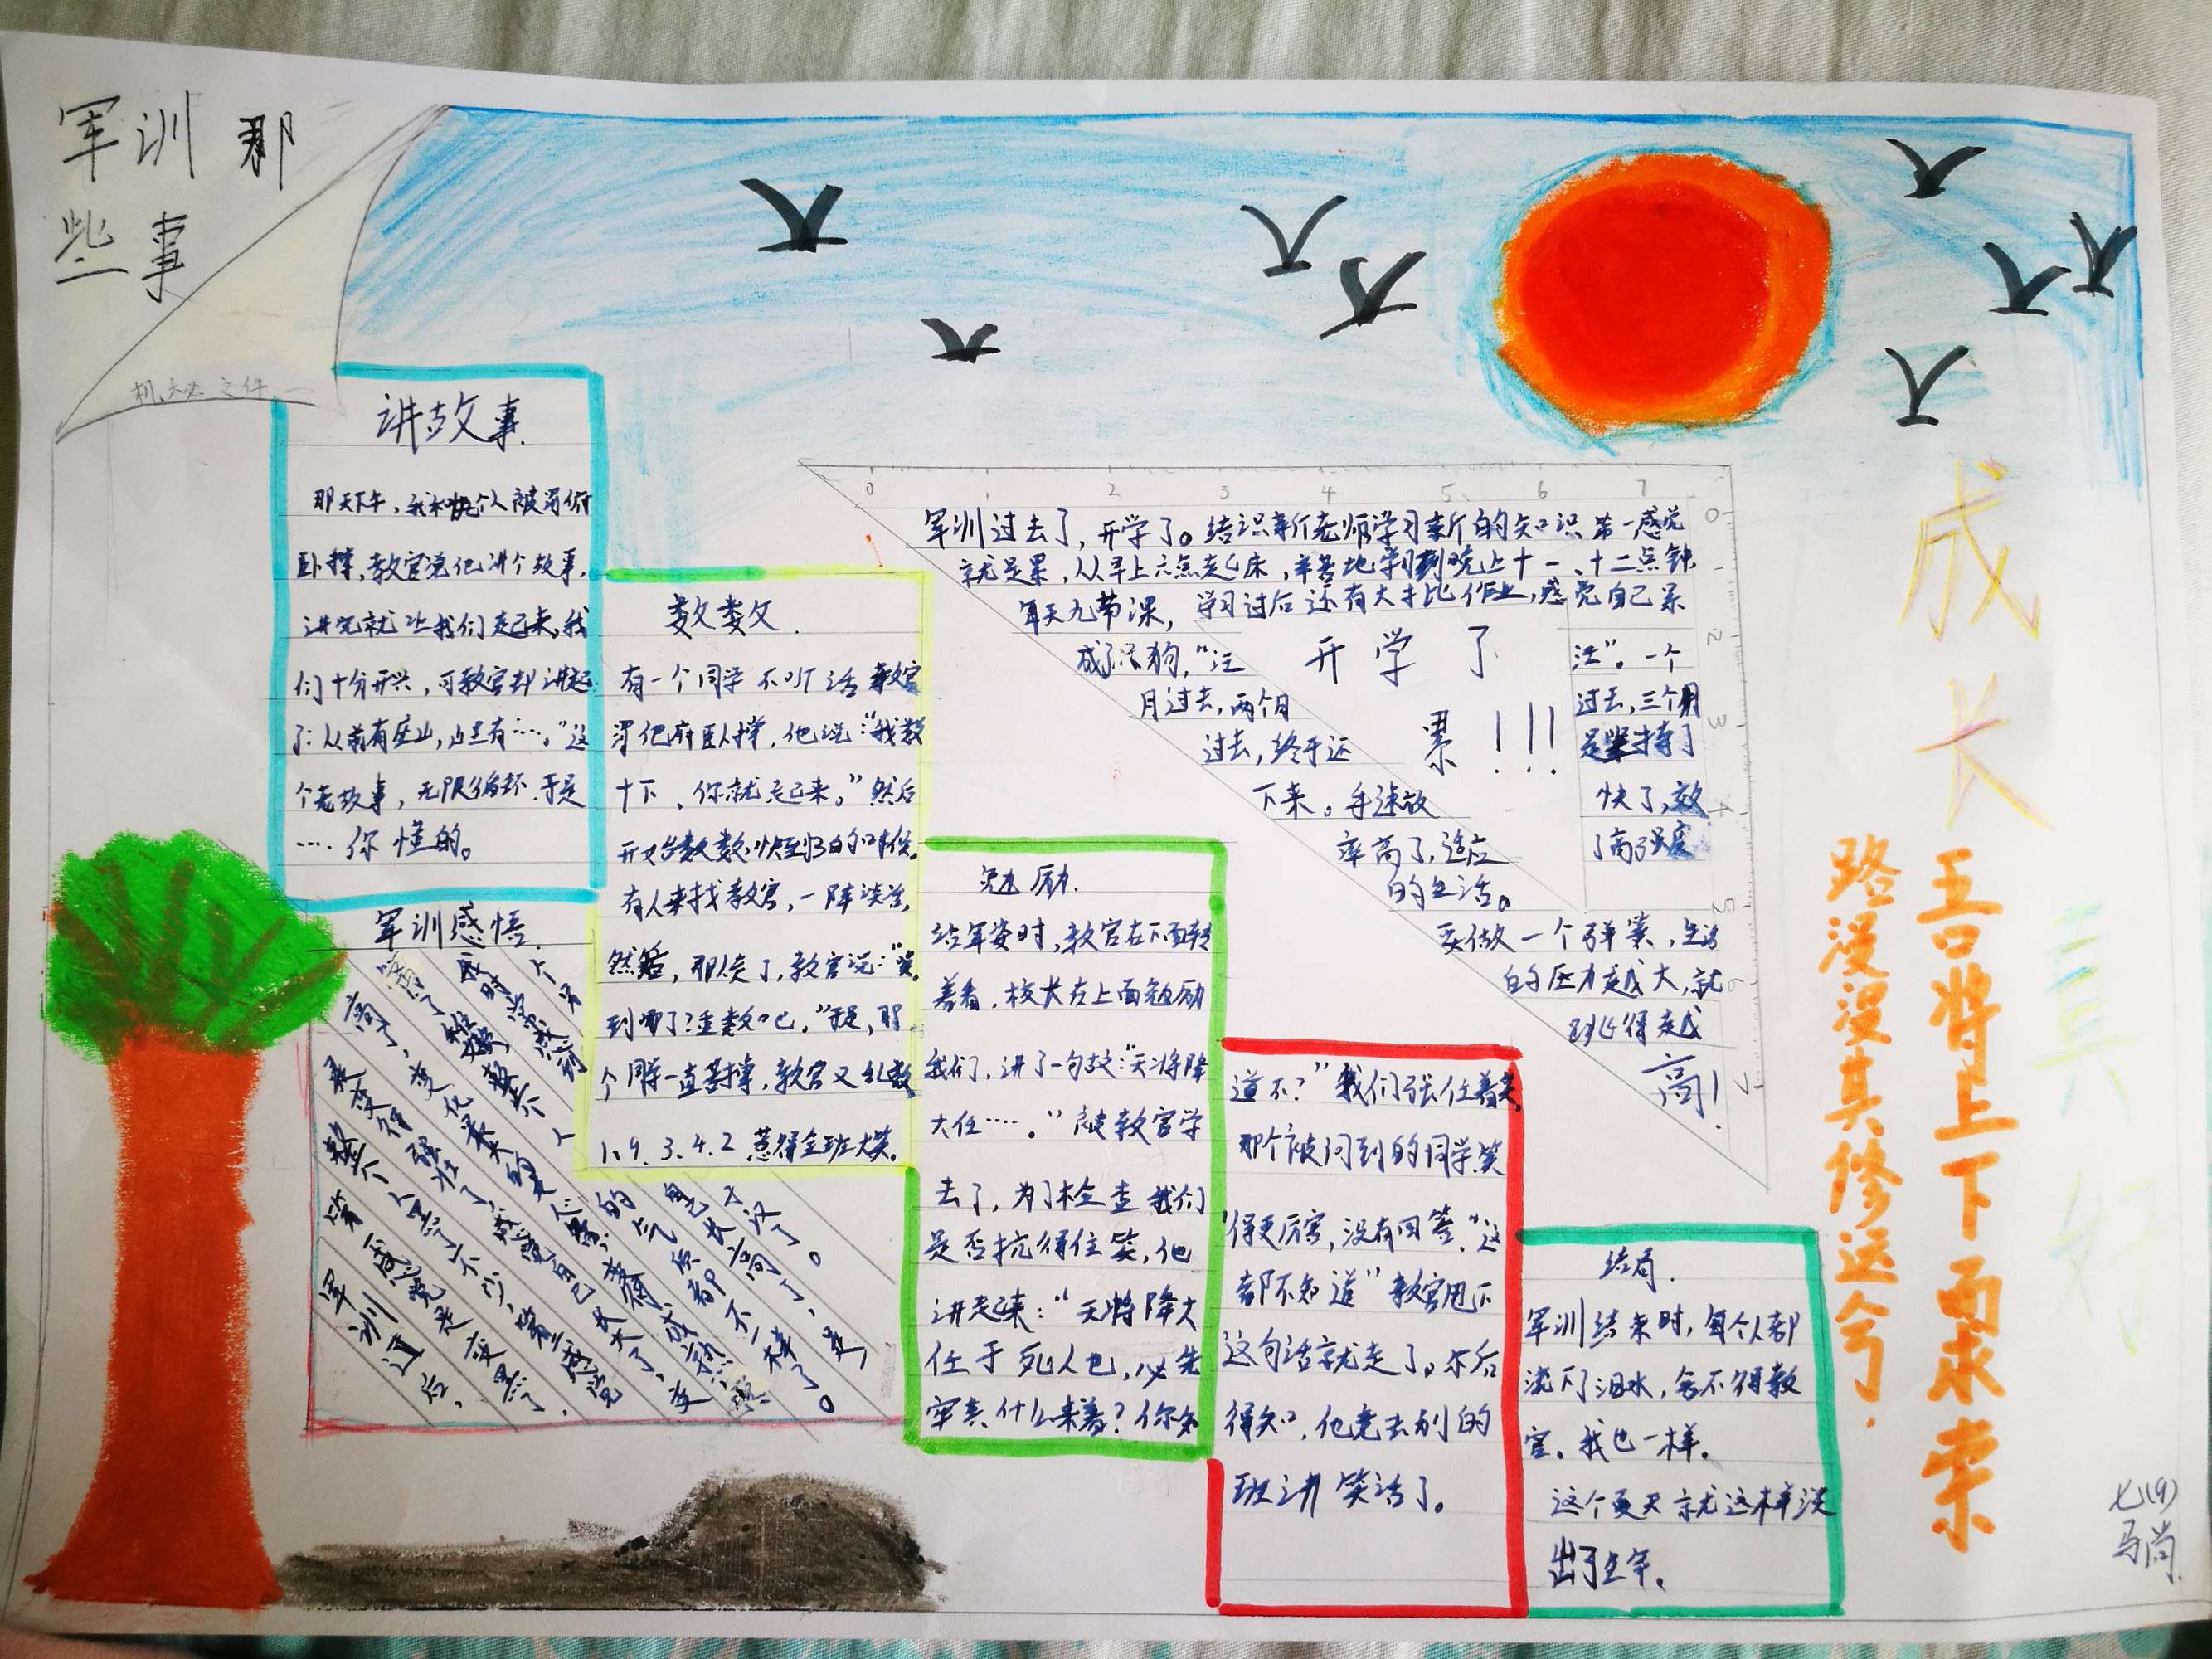 军训那
些事
机秘文件
讲故事
那天下午，我和几个人被罚俯
卧撑，教官说他讲个故事，
讲完就让我们起来，我
们十分开兴，可教官却讲起
了：从前有座山，山里有……"这
个老故事，无限循环，于是
……你懂的。
数数
有一个同学不听话教官
罚他俯卧撑，他说："我数
十下，你就起来。"然后
开始数数，快到的时候，
有人来找教官，一阵谈话，
然后，那人走了，教官说："咦，
到哪了？重数吧，"于是，那
个同学一直苦撑，教官又乱数
1、9、3、4、2 惹得全班大笑。
勉励
站军姿时，教官在下面转
着看，校长在上面勉励
我们，讲了一句故："天将降
大任……。"被教官学
去了，为了检查我们
是否抗得住笑，他
讲起来："天将降大
任于死人也，必先
牢其什么来着？你知
道不？"我们强住着笑，
那个被问到的同学笑
得更厉害，没有回答，"这
都不知道"教官甩下
这句话就走了。尔后
得知，他竟去别的
班讲笑话了。
结局
军训结束时，每个人都
流下了泪水，舍不得教
官。我也一样。
这个夏天就这样淡
出了生年。
军训感悟
军训过后，
第一感觉是变黑了，
整个人黑了不少，第二感觉
变得强壮了，感觉自己长大了，变
高了，变化最大的是
整个人的气质都不一样了。
0 1 2 3 4 5 6 7
军训过去了，开学了。结识新老师学习新的知识，第一感觉
就是累，从早上六点起床，辛苦地学习到晚上十一、十二点钟
每天九节课，学习过后还有大把作业，感觉自己累
成了只狗，"汪汪"。一个
月过去，两个月过去，三个月
过去，终于还是坚持了
下来。手速放快了，效
率高了，适应了高强度
的生活。
开学了
累！！！
要做一个弹簧，生活
的压力越大，就
跳得越
高！
0 1 2 3 4 5 6 7
成长
真好
路漫漫其修远兮，
吾将上下而求索
七(9)
马尚